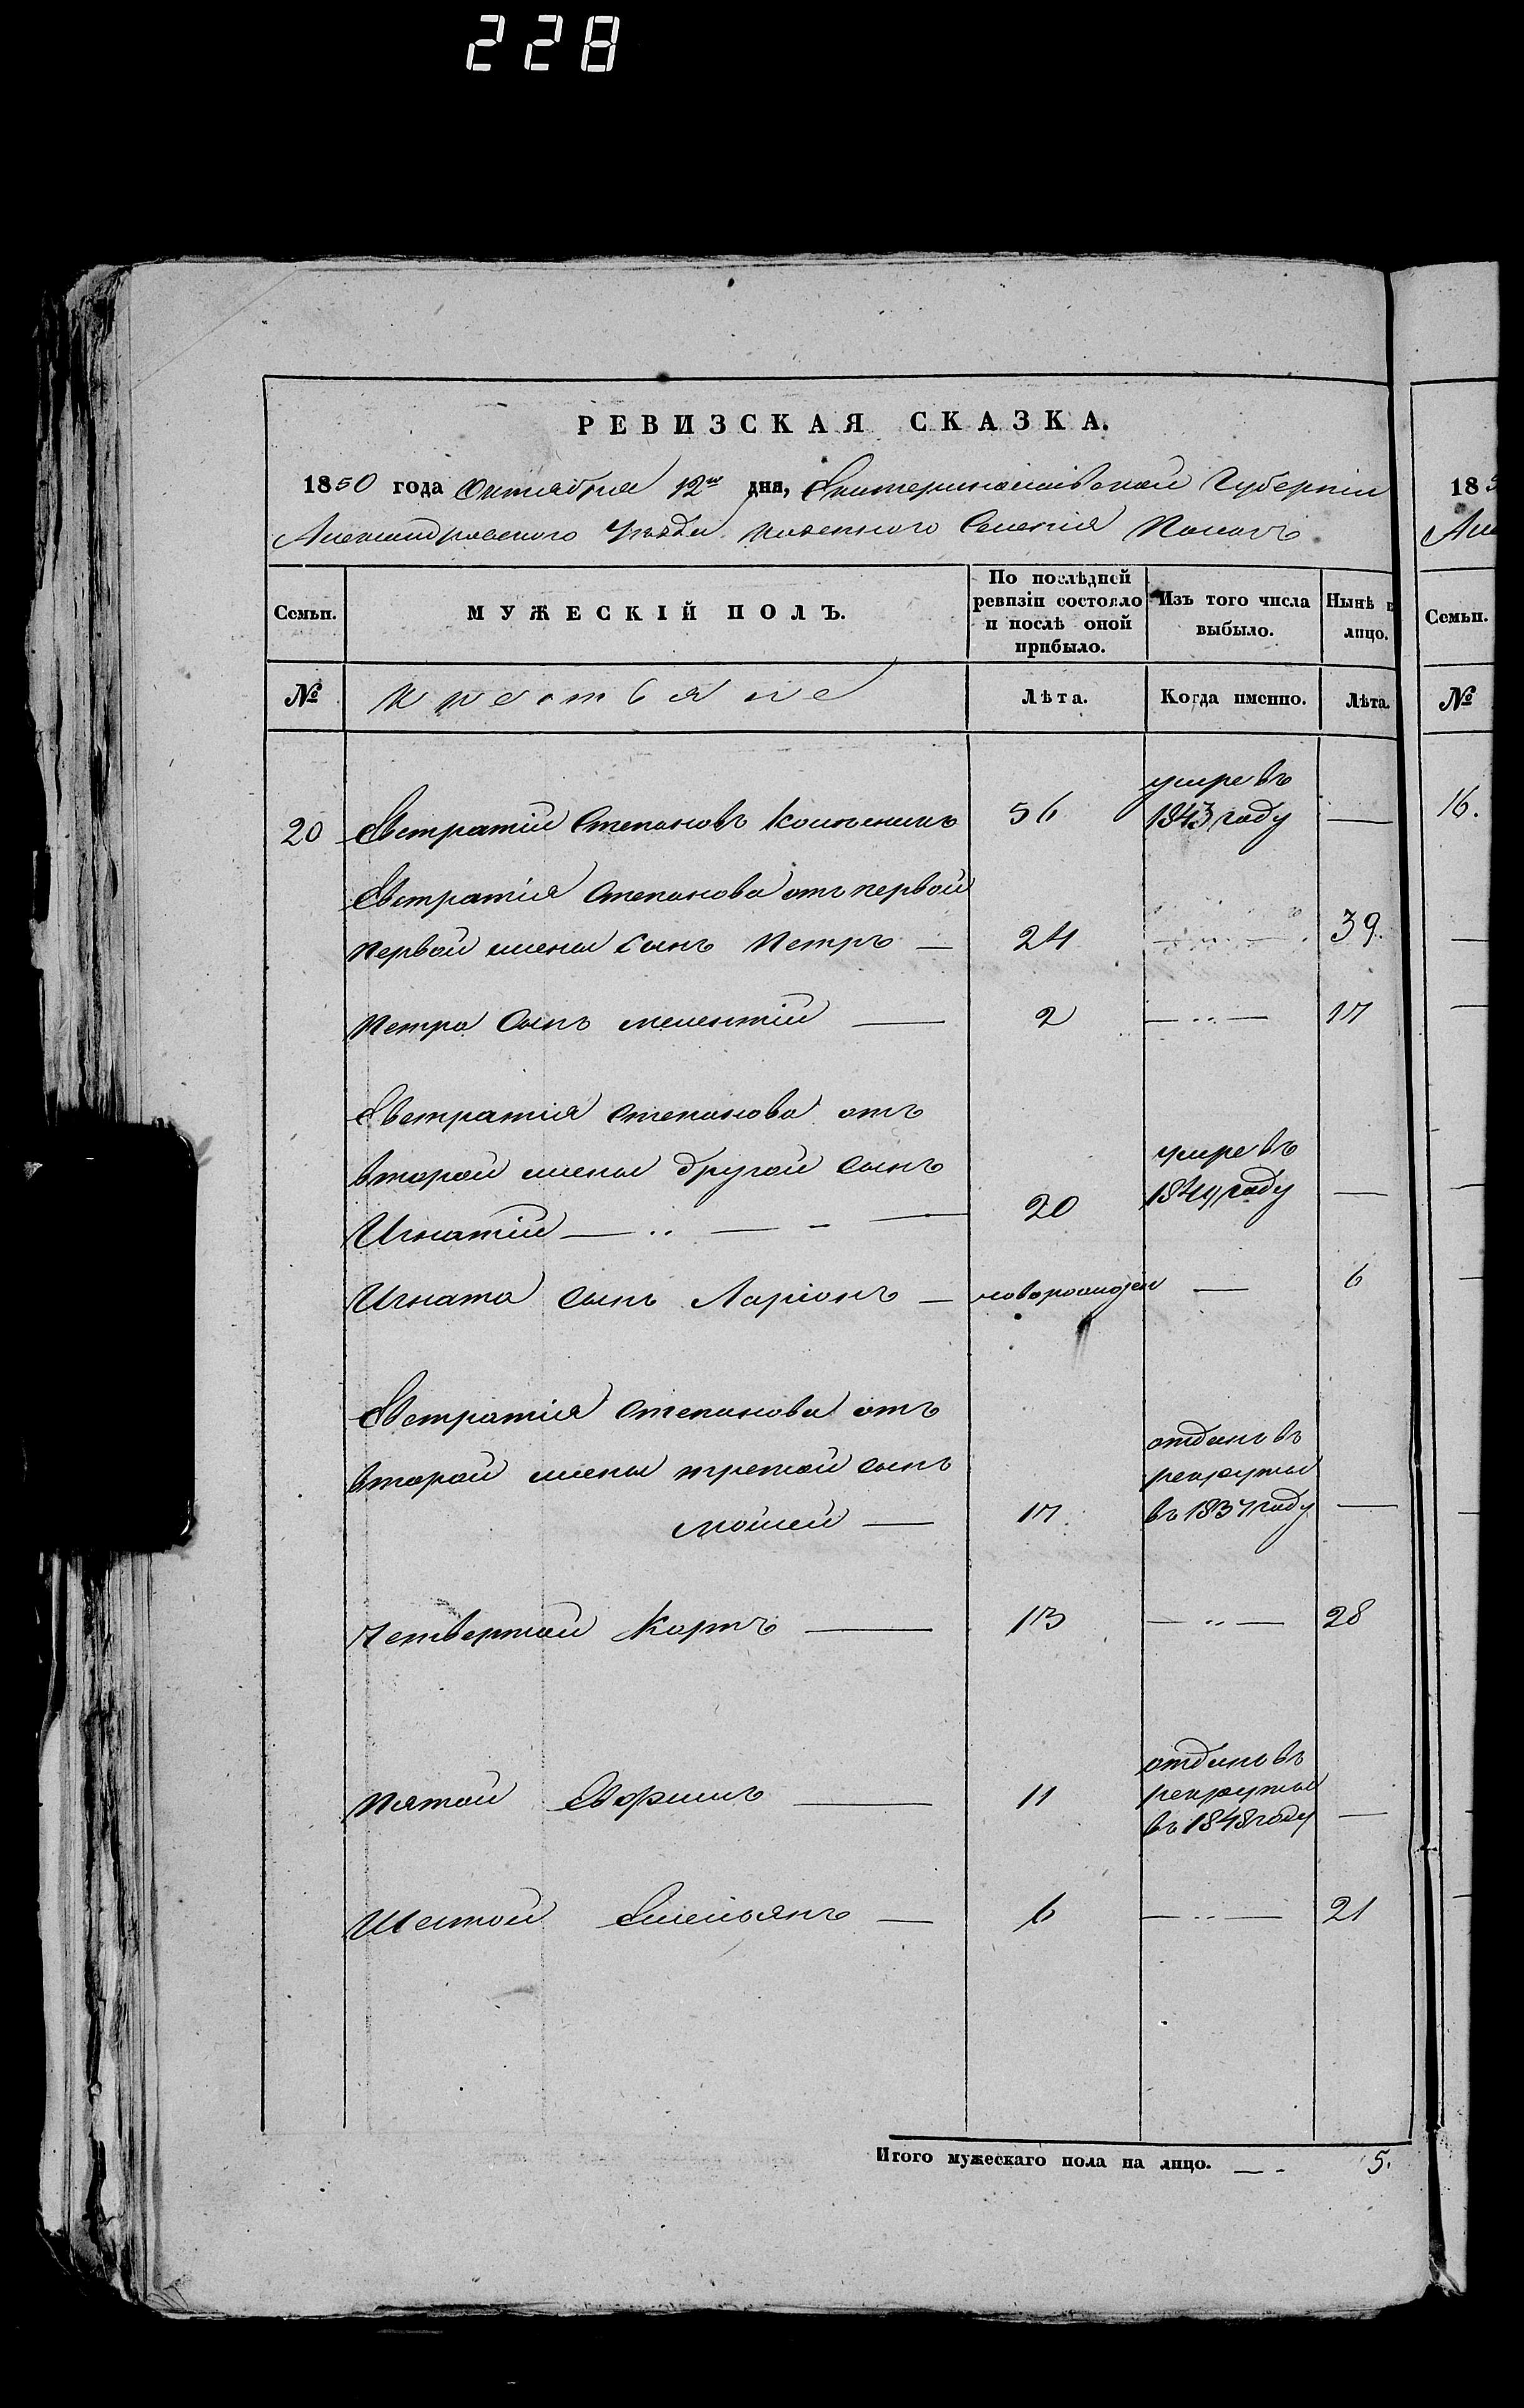 228
РЕВИЗСКАЯ СКАЗКА.
1850 года Октября 12го дня, Екатеринославской Губернии
Александровского Уезда казенного Селения
Семьи.
МУЖЕСКІЙ ПОЛЪ.
По послѣдней ревизіи состояло и послѣ оной прибыло.
Изъ того числа выбыло.
Нынѣ в лицо.
№
крестьяне
Лѣта.
Когда именно.
Лѣта.
20 Евстратій Степановъ 56 умре въ 1843 году —
Евстратія Степанова отъ первой
первой жены сынъ Петръ — 24 39.
Петра сынъ мелентій — 2 — .. — 17
Евстратія степанова отъ
второй жены другой сынъ
Игнатій — .. — - — 20 умре въ году —
Игната сынъ Ларіонъ — новорожден — 6
Евстратія степанова отъ
второй жены третой сынъ
мойсей — 17 отданъ въ рекруты в 1837 году —
Четвертой Карпъ — 13 — .. — 28
Пятой Евфимъ — 11 отданъ въ рекруты въ 1848 году —
Шестой Емельянъ — 6 — .. — 21
Итого мужескаго пола на лицо. — - 5.
18
Але
Семьи.
№
16.